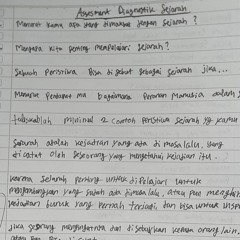 Assesment Diagnostik Sejarah
Menurut kamu apa yang dimaksud dengan Sejarah ?
Mengapa kita penting mempelajari Sejarah ?
Sebuah Peristiwa bisa di sebut sebagai sejarah jika ...
Menurut Pendapat mu bagaimana Peranan Manusia dalam S
Tuliskanlah minimal 2 contoh peristiwa Sejarah yg kamu
Sejarah adalah kejadian yang ada di masa lalu, yang
di catat oleh seseorang yang mengetahui kejadian itu .
karena Sejarah penting untuk di Pelajari untuk
yang sudah ada dimasa lalu, atau pun
kejadian buruk yang pernah terjadi, dan bisa untuk insp
Jika seorang mengingatnya dan di sebutkan kepada orang lain,